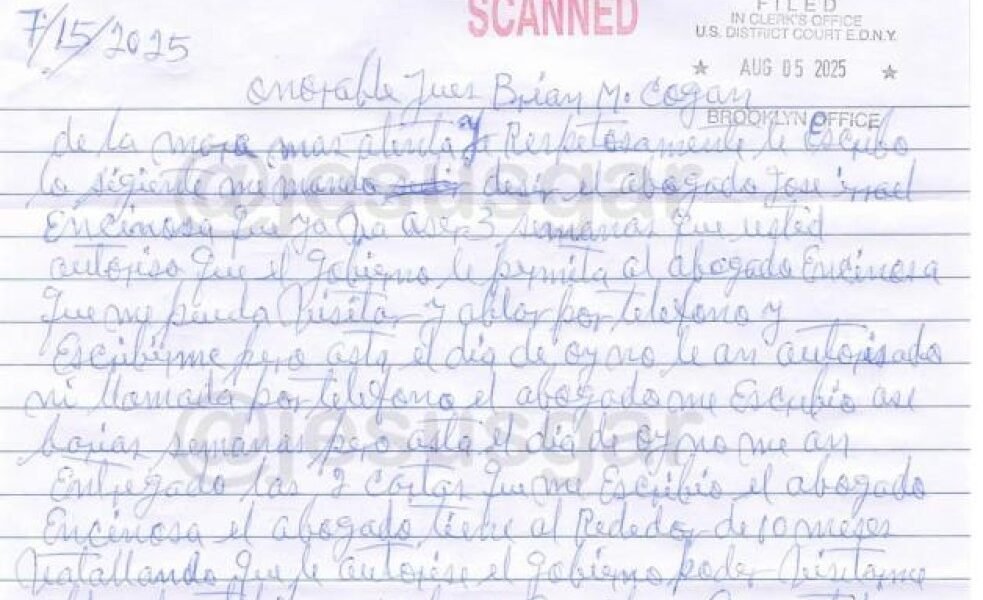 7/15/2025
SCANNED
FILED
IN CLERK'S OFFICE
U.S. DISTRICT COURT E.D.N.Y.
★ AUG 05 2025 ★
BROOKLYN OFFICE
onorable Jues Brian M. Cogan
de la manera mas atenta y Respetosamente le Escribo
lo sigiente me mando desir el abogado Jose
Encinosa que ya ha aser 3 semanas que usted
autoriso que el gobierno le permita al abogado Encinosa
que me pueda Visitar y ablar por telefono y
Escribirme pero asta el dia de oy no le an autorisado
ni llamada por telefono el abogado me Escribio ase
barias semanas pero asta el dia de oy no me an
Entregado las 2 cartas que me Escribio el abogado
Encinosa el abogado tiene al Rededor de 10 meses
Vatallando que le autorise el gobierno poder Visitarme
@jesusgar
@jesusgar